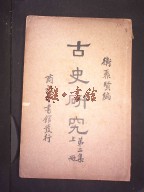 衛聚賢編
古史研究
第二集
上冊
商務印書館發行